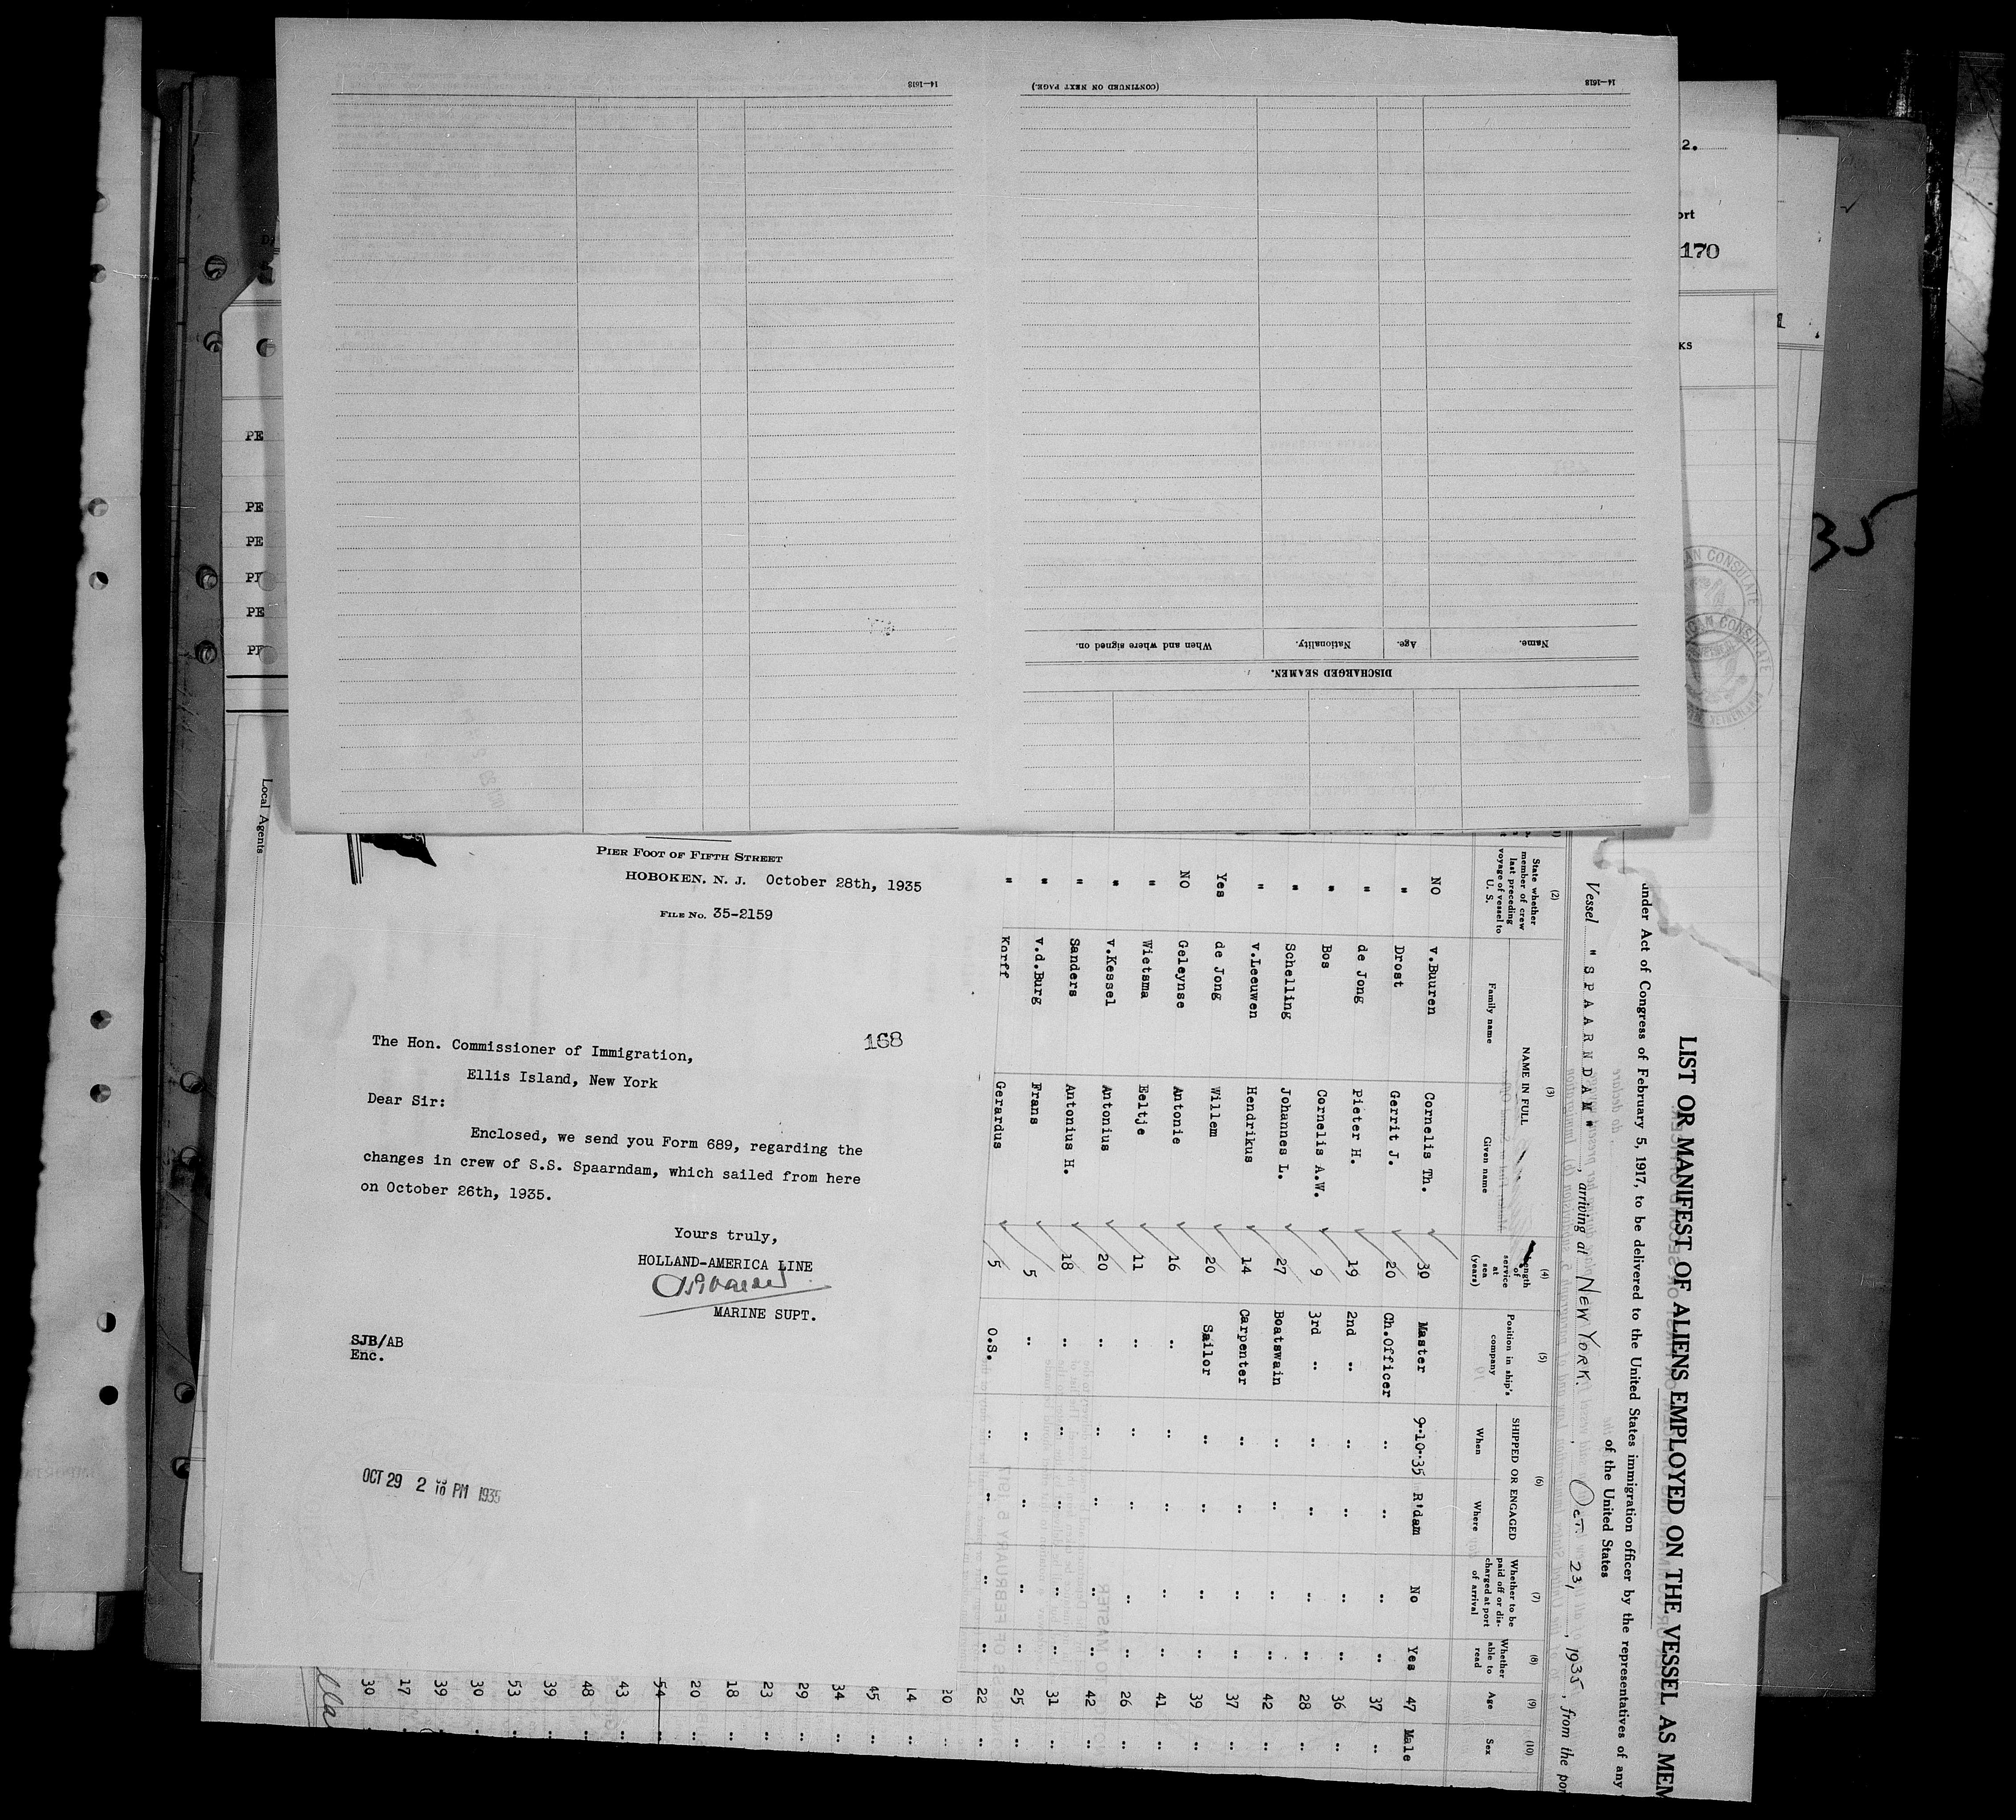 14—1618
(CONTINUED ON NEXT PAGE.)
14—1618
When and where signed on.
Nationality.
Age.
Name.
DISCHARGED SEAMEN.
2.
ort
170
KS
35
PE
PE
PE
PE
PE
Local Agents
PIER FOOT OF FIFTH STREET
HOBOKEN, N. J. October 28th, 1935
FILE No. 35-2159
168
The Hon. Commissioner of Immigration,
Ellis Island, New York
Dear Sir:
Enclosed, we send you Form 689, regarding the
changes in crew of S.S. Spaarndam, which sailed from here
on October 26th, 1935.
Yours truly,
HOLLAND-AMERICA LINE
MARINE SUPT.
SJB/AB
Enc.
OCT 29 2 PM 1935
LIST OR MANIFEST OF ALIENS EMPLOYED ON THE VESSEL AS MEM
under Act of Congress of February 5, 1917, to be delivered to the United States immigration officer by the representatives of any
of the United States
Vessel "SPAARNDAM", arriving at NEW YORK. Oct. 23, 1935, from the por
(2) (3) (4) (5) (6) (7) (8) (9) (10)
State whether member of crew last preceding voyage of vessel to U. S.
NAME IN FULL
Family name Given name
Length of service at sea (years)
Position in ship's company
SHIPPED OR ENGAGED
When Where
Whether to be paid off or discharged at port of arrival
Whether able to read
Age
Sex
NO v.Buuren Cornelis Th. 30 Master 9-10-35 R'dam No Yes 47 Male
" Drost Gerrit J. 20 Ch.Officer " " " " 37 "
" de Jong Pieter H. 19 2nd " " " " " 36 "
" Bos Cornelis A.W. 9 3rd " " " " " 28 "
" Schelling Johannes L. 27 Boatswain " " " " 42 "
" v.Leeuwen Hendrikus 14 Carpenter " " " " 37 "
Yes de Jong Willem 20 Sailor " " " " 39 "
NO Geleynse Antonie 16 " " " " " 41 "
" Wietsma Eeltje 11 " " " " " 26 "
" v.Kessel Antonius 20 " " " " " 42 "
" Sanders Antonius H. 18 " " " " " 31 "
" v.d.Burg Frans 5 " " " " " 25 "
" Korff Gerardus 5 O.S. " " " " 22 "
20 "
14 "
45 "
34 "
29 "
23 "
18 "
20 "
54 "
43 "
48 "
39 "
53 "
30 "
39 "
17 "
30 "